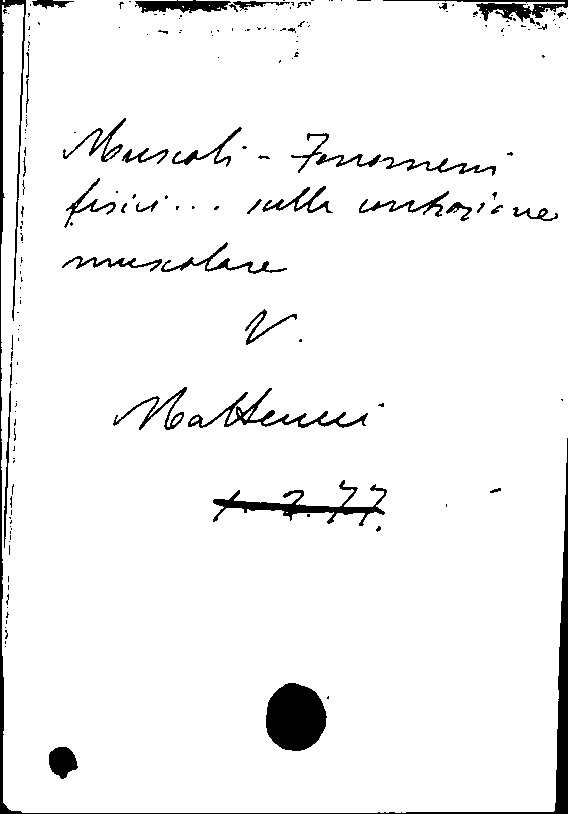 Muscoli - Fenomeni
fisici... sulla contrazione
muscolare
V.
Matteucci
1.2.77.